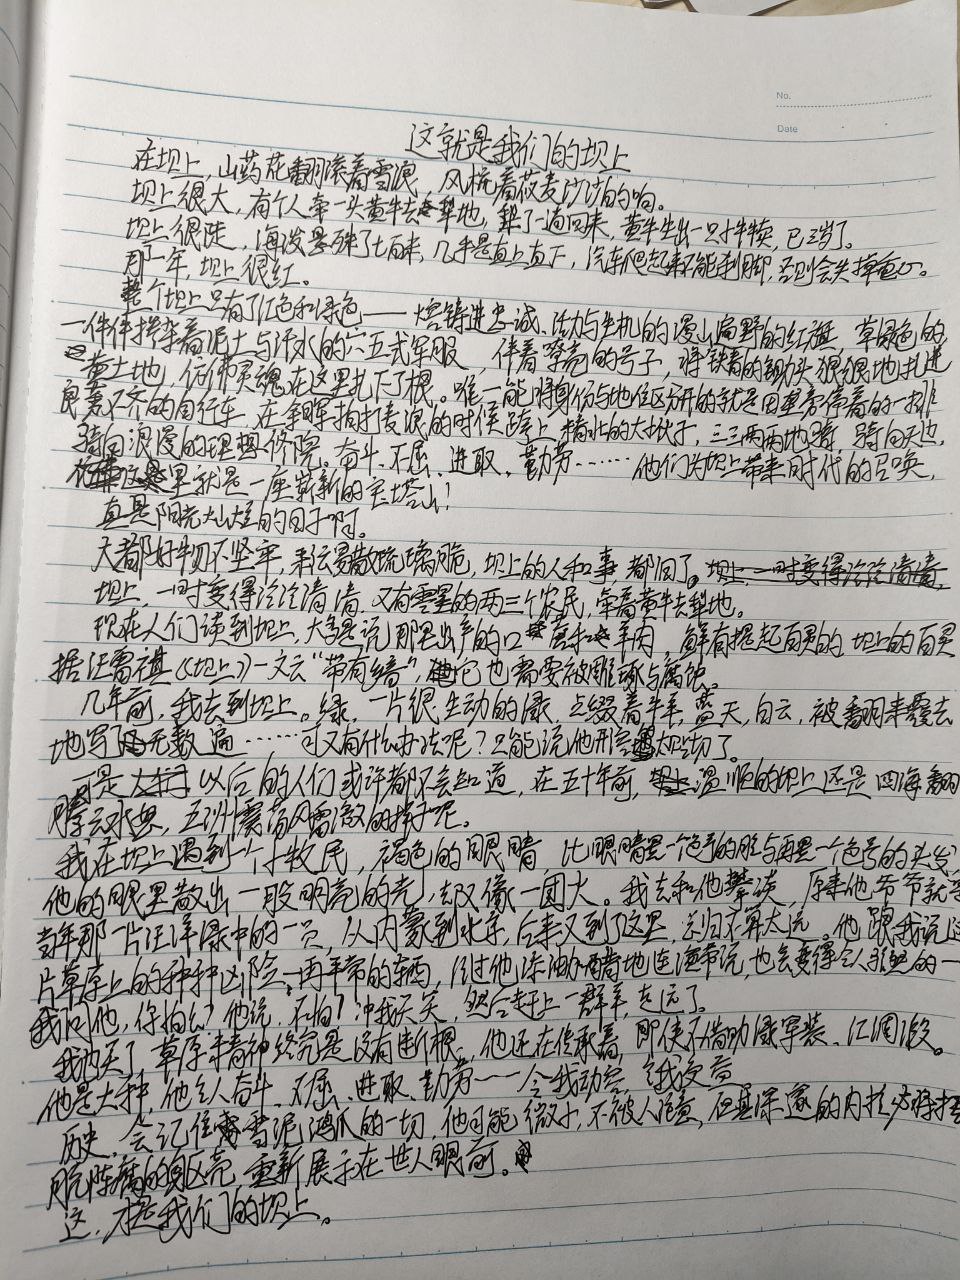 No.
Date
这就是我们的坝上
在坝上，山药花翻滚着雪浪，风梳着莜麦沙沙的响。
坝上很大，有个人牵一头黄牛去犁地，犁了一道回来，黄牛生出一只小牛犊，已3岁了。
坝上很陡，海泼是碎了七百米，几乎是直上直下，汽车爬起来不能刹脚，否则会失掉重心。
那一年，坝上很红。
整个坝上只有了红色和绿色——熔铸进忠诚、活力与生机的漫山遍野的红旗，草绿色的
一件件掺杂着泥土与汗水的六五式军服，伴着嘹亮的号子，将铁青的锄头狠狠地扎进
黄土地，仿佛灵魂在这里扎下了根。唯一能将身份与地位区分开的就是田埂旁停着的一排
良莠不齐的自行车，在余晖拍打麦浪的时候跨上 的大伙子，三三两两地骑，骑向天边，
骑向浪漫的理想修院。奋斗、不屈、进取、勤劳……他们为坝上带来时代的召唤，
这里就是一座崭新的宝塔山！
真是阳光灿烂的日子啊。
大都好物不坚牢，彩云易散琉璃脆，坝上的人和事都旧了。
坝上，一时变得冷冷清清，又有零星的两三个农民，牵着黄牛去犁地。
现在人们谈到坝上，大多是说那里出产的口蘑和羊肉，鲜有提起百灵的，坝上的百灵
据汪曾祺《坝上》一文云“带有 ”，它也需要被雕琢与腐蚀。
几年前，我去到坝上。绿，一片很生动的绿，点缀着牛羊，蓝天，白云，被翻来覆去
地写了无数遍……可又有什么办法呢？只能说他形容 切了。
可是以后的人们或许都不会知道，在五十年前，温顺的坝上还是四海翻
腾云水怒，五洲震荡风雷激的样子呢。
我在坝上遇到一个小牧民，褐色的眼睛，比眼睛黑一个色号的脸与再黑一个色号的头发，
他的眼里散出一股明亮的光，却又像一团火。我去和他攀谈，原来他爷爷就是
当年那一片汪洋绿中的一员，从内蒙到北京，后来又到了这里，总归不算太远。他跟我说这
片草原上的种种凶险，再平常的东西，经过他添油加醋地连演带说，也会变得令人 的一
我问他，你怕么？他说，不怕？冲我笑笑，然后赶上一群羊，走远了。
我也笑了，草原精神终究是没有断根。他还在传承着，即便不借助绿军装、红 激。
他是火种，他令人奋斗、不屈、进取、勤劳——令我动容，令我
历史，会记住雪泥鸿爪的一切，他可能微小，不被人注意，但其深邃的内核必将挣
脱陈腐的躯壳，重新展示在世人眼前。
这，才是我们的坝上。